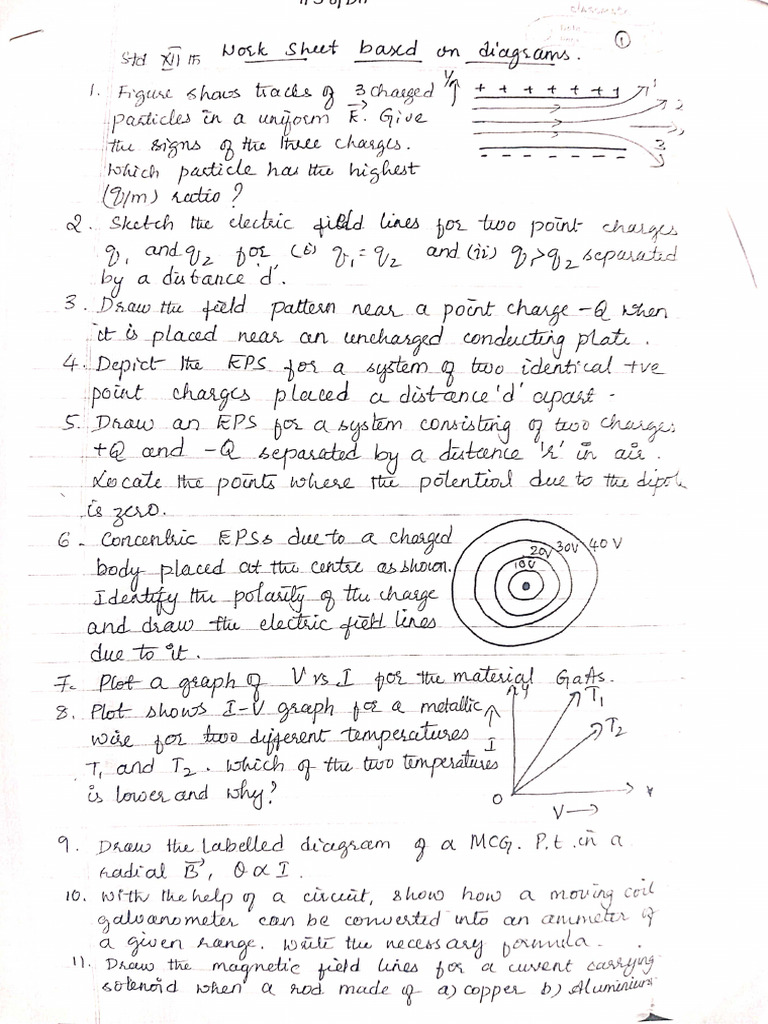 CLASSMATE
Std XII th Work Sheet based on diagrams. 1
1. Figure shows tracks of 3 charged
particles in a uniform E. Give
the signs of the three charges.
Which particle has the highest
(q/m) ratio?
+ + + + + + +
y
1
2
x
3
- - - - - - -
2. Sketch the electric field lines for two point charges
q1 and q2 for (i) q1 = q2 and (ii) q1>q2 separated
by a distance 'd'.
3. Draw the field pattern near a point charge -Q when
it is placed near an uncharged conducting plate.
4. Depict the EPS for a system of two identical +ve
point charges placed a distance 'd' apart.
5. Draw an EPS for a system consisting of two charges
+Q and -Q separated by a distance 'r' in air.
Locate the points where the potential due to the dipole
is zero.
6. Concentric EPSs due to a charged
body placed at the centre as shown.
Identify the polarity of the charge
and draw the electric field lines
due to it.
10V 20V 30V 40V
7. Plot a graph of V vs I for the material GaAs.
8. Plot shows I-V graph for a metallic
wire for two different temperatures
T1 and T2. Which of the two temperatures
is lower and why?
y
T1
T2
I
O
x
V
9. Draw the labelled diagram of a MCG. P.t. in a
radial B, θ ∝ I.
10. With the help of a circuit, show how a moving coil
galvanometer can be converted into an ammeter of
a given range. Write the necessary formula.
11. Draw the magnetic field lines for a current carrying
solenoid when a rod made of a) copper b) Aluminium